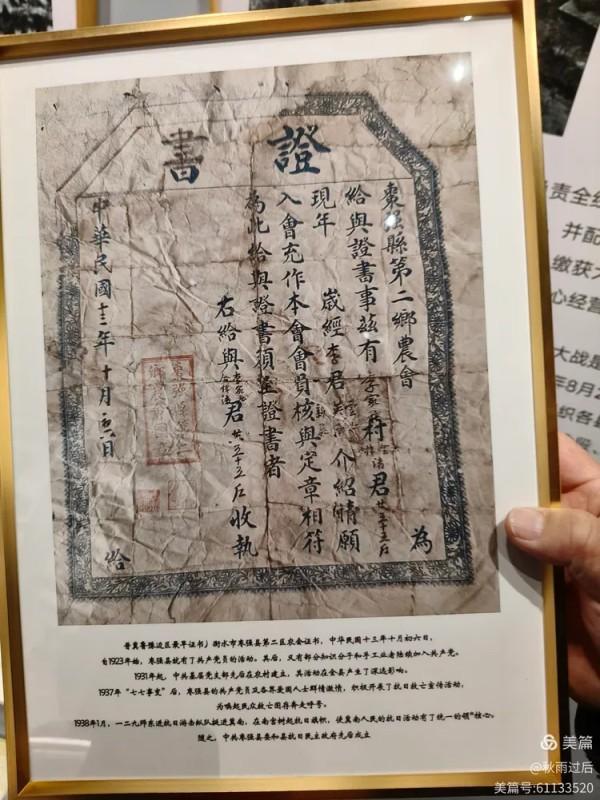 證書
棗強縣第二鄉農會
為
給與證書事茲有李家 村 君 共二十五戶
現年 歲經李君 介紹情願
入會充作本會會員核與定章相符
為此給與證書須至證書者
右給與 君 共二十五戶收執
中華民國十三年十月初六日
給
晋冀鲁豫边区最早证书》衡水市枣强县第二区农会证书,中华民国十三年十月初六日,
自1923年始,枣强县就有了共产党员的活动。其后,又有部分知识分子和手工业者陆续加入共产党。
1931年起,中共基层党支部先后在农村建立,其活动在全县产生了深远影响。
1937年“七七事变”后,枣强县的共产党员及各界爱国人士群情激愤,积极开展了抗日救亡宣传活动,
为唤起民众救亡图存奔走呼号。
1938年1月,一二九师东进抗日游击纵队挺进冀南,在南宫树起抗日旗帜,使冀南人民的抗日活动有了统一的领“核心。
随之,中共枣强县委和县抗日民主政府先后成立
负责全线
并配
缴获大
心经营
大战是
年8月2
织各
美篇
@秋雨过后
美篇号:61133520